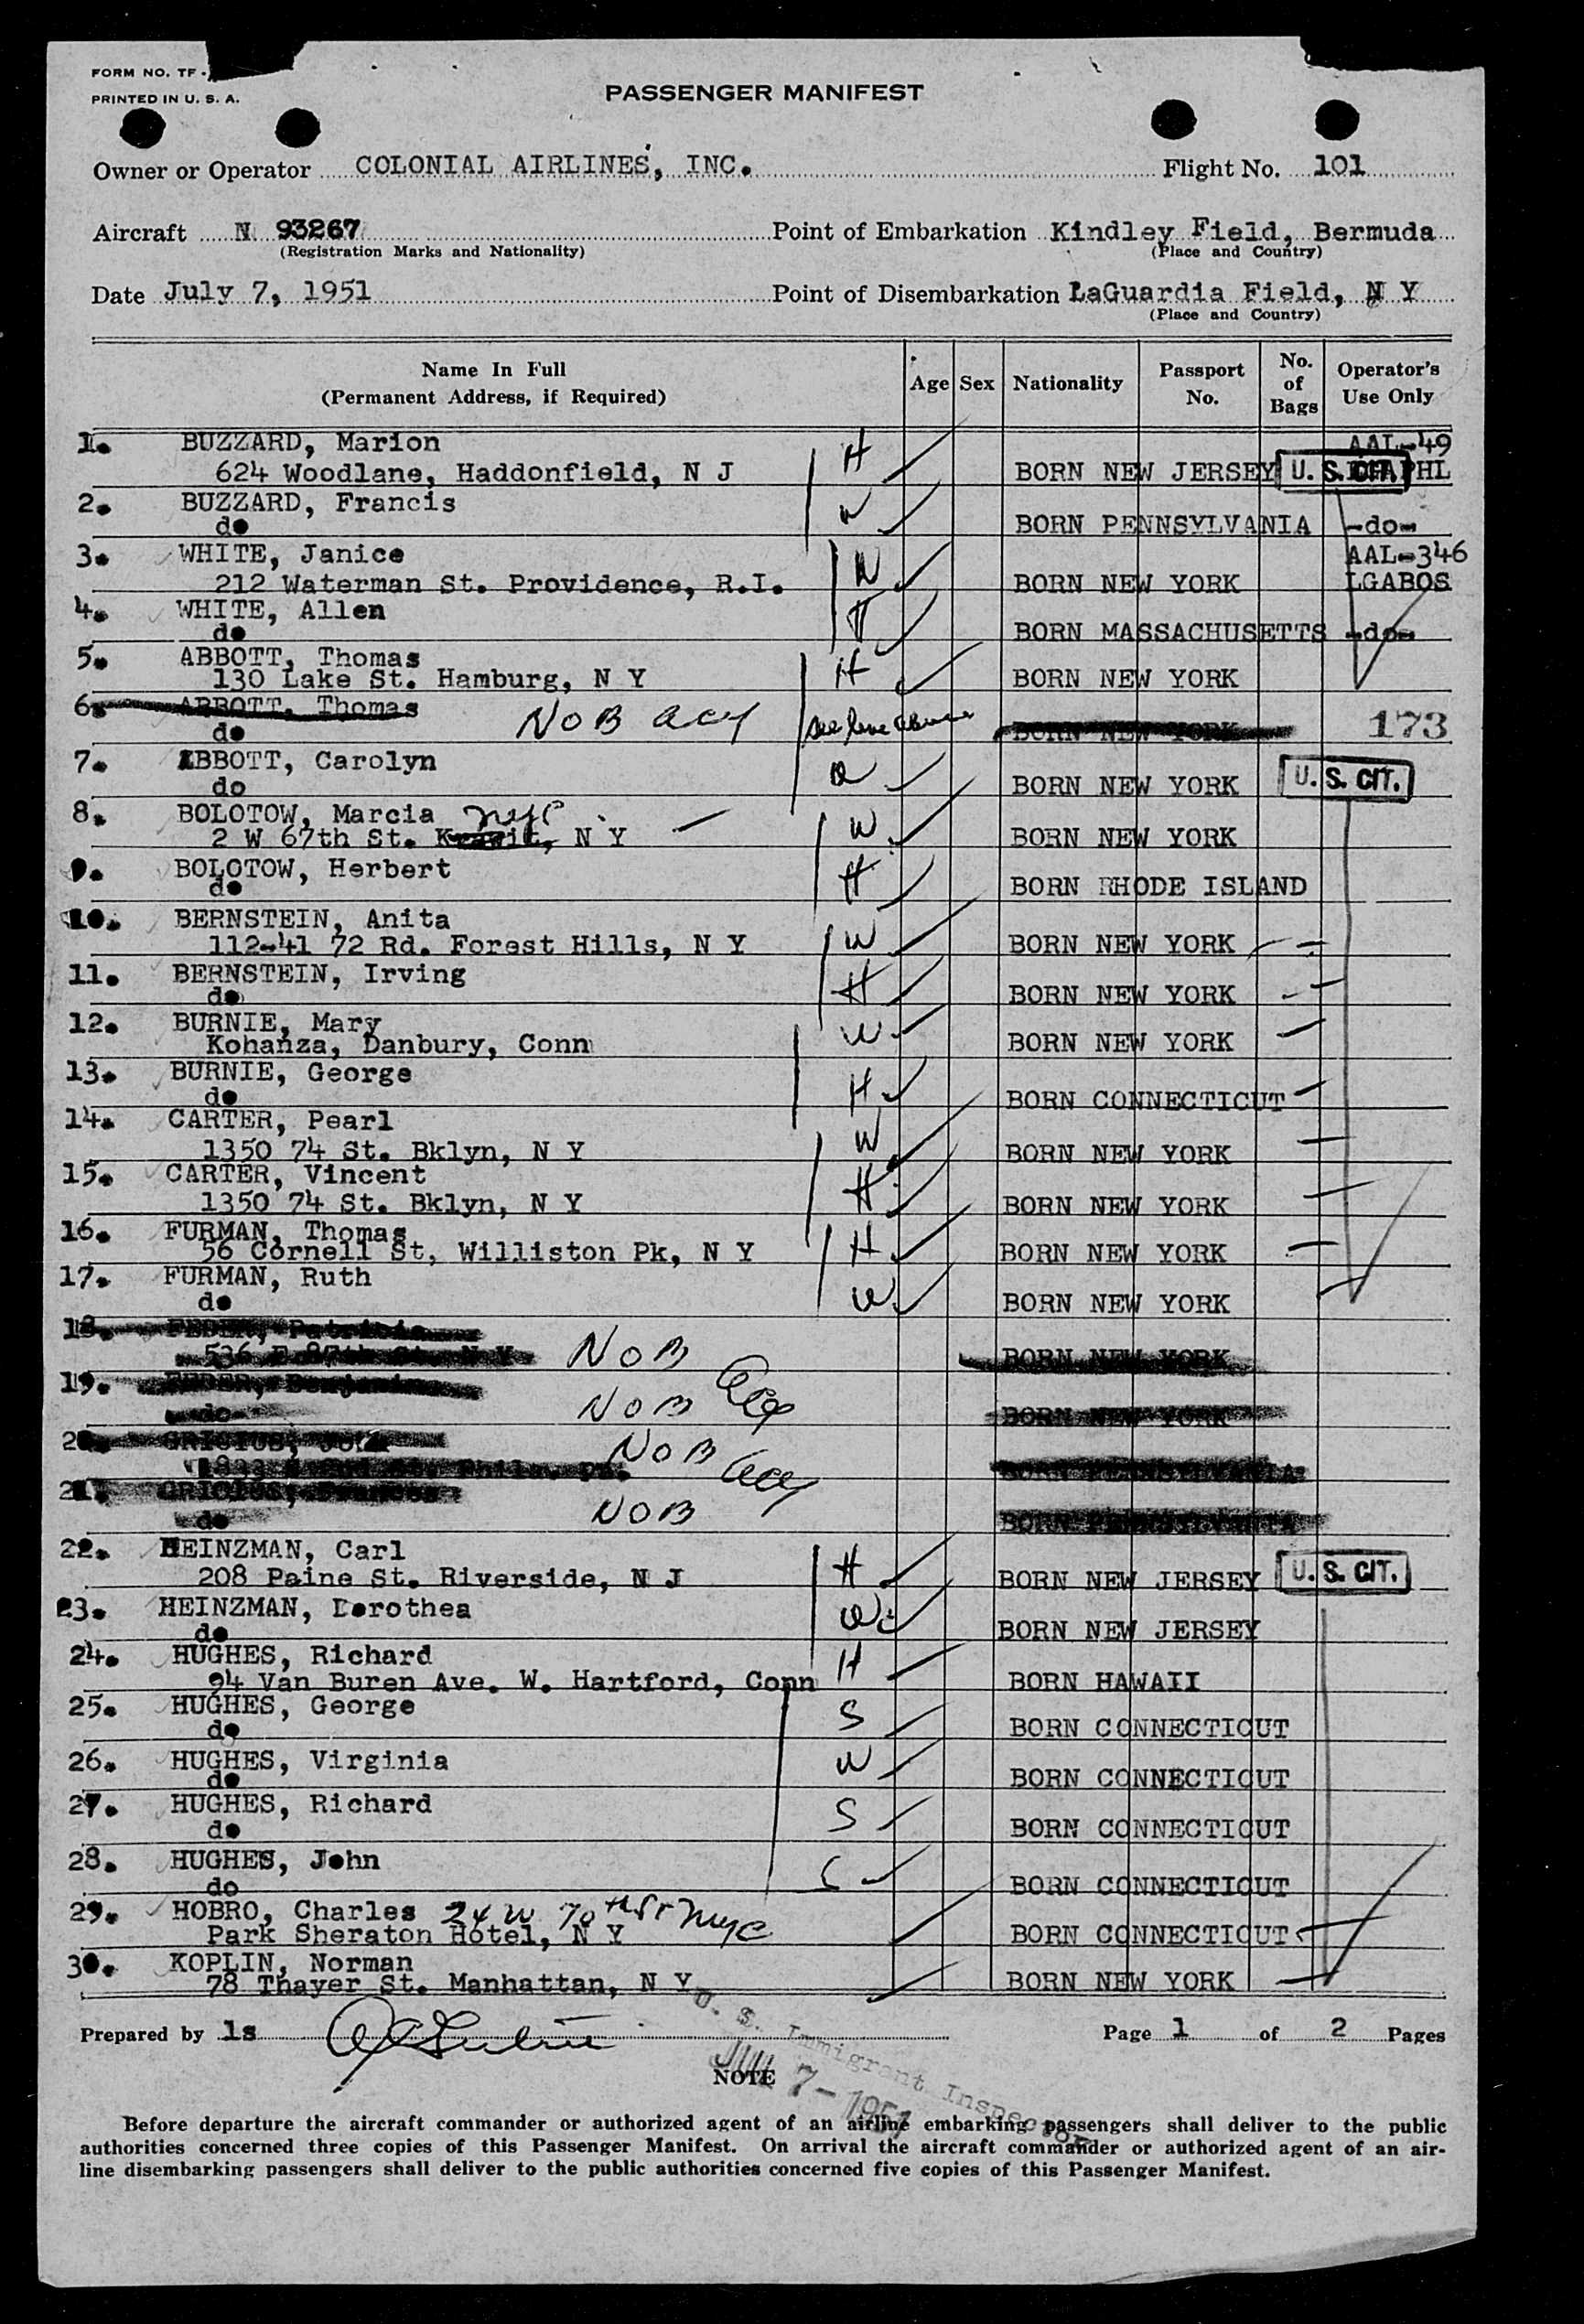 FORM NO. TF-
PRINTED IN U. S. A.
PASSENGER MANIFEST
Owner or Operator COLONIAL AIRLINES, INC. Flight No. 101
Aircraft N 93267 Point of Embarkation Kindley Field, Bermuda
(Registration Marks and Nationality) (Place and Country)
Date July 7, 1951 Point of Disembarkation LaGuardia Field, N Y
(Place and Country)
Name In Full (Permanent Address, if Required) Age Sex Nationality Passport No. No. of Bags Operator's Use Only
1. BUZZARD, Marion H AAL-49
624 Woodlane, Haddonfield, N J BORN NEW JERSEY U. S. CIT. PHL
2. BUZZARD, Francis W
do BORN PENNSYLVANIA -do-
3. WHITE, Janice W AAL-346
212 Waterman St. Providence, R.I. BORN NEW YORK LGABOS
4. WHITE, Allen H
do BORN MASSACHUSETTS -do-
5. ABBOTT, Thomas H
130 Lake St. Hamburg, N Y BORN NEW YORK
6. ABBOTT, Thomas NOB see line above
do BORN NEW YORK 173
7. ABBOTT, Carolyn
do BORN NEW YORK U. S. CIT.
8. BOLOTOW, Marcia nyc W
2 W 67th St. N Y BORN NEW YORK
9. BOLOTOW, Herbert H
do BORN RHODE ISLAND
10. BERNSTEIN, Anita W
112-41 72 Rd. Forest Hills, N Y BORN NEW YORK
11. BERNSTEIN, Irving H
do BORN NEW YORK
12. BURNIE, Mary W
Kohanza, Danbury, Conn BORN NEW YORK
13. BURNIE, George H
do BORN CONNECTICUT
14. CARTER, Pearl W
1350 74 St. Bklyn, N Y BORN NEW YORK
15. CARTER, Vincent H
1350 74 St. Bklyn, N Y BORN NEW YORK
16. FURMAN, Thomas H
56 Cornell St, Williston Pk, N Y BORN NEW YORK
17. FURMAN, Ruth W
do BORN NEW YORK
18. FEDER, Patricia NOB
536 E 87th St. N Y BORN NEW YORK
19. FEDER, Benjamin NOB
do BORN NEW YORK
20. GRICIUS, NOB
St. Phila, Pa. BORN PENNSYLVANIA
21. GRICIUS, Frances NOB
do BORN PENNSYLVANIA
22. HEINZMAN, Carl H
208 Paine St. Riverside, N J BORN NEW JERSEY U. S. CIT.
23. HEINZMAN, Dorothea W
do BORN NEW JERSEY
24. HUGHES, Richard H
94 Van Buren Ave. W. Hartford, Conn BORN HAWAII
25. HUGHES, George S
do BORN CONNECTICUT
26. HUGHES, Virginia W
do BORN CONNECTICUT
27. HUGHES, Richard S
do BORN CONNECTICUT
28. HUGHES, John
do BORN CONNECTICUT
29. HOBRO, Charles 24 W 70th St nyc
Park Sheraton Hotel, N Y BORN CONNECTICUT
30. KOPLIN, Norman
78 Thayer St. Manhattan, N Y BORN NEW YORK
Prepared by ls Page 1 of 2 Pages
U. S. Immigrant Inspector
JUL 7-1951
NOTE
Before departure the aircraft commander or authorized agent of an airline embarking passengers shall deliver to the public
authorities concerned three copies of this Passenger Manifest. On arrival the aircraft commander or authorized agent of an air-
line disembarking passengers shall deliver to the public authorities concerned five copies of this Passenger Manifest.